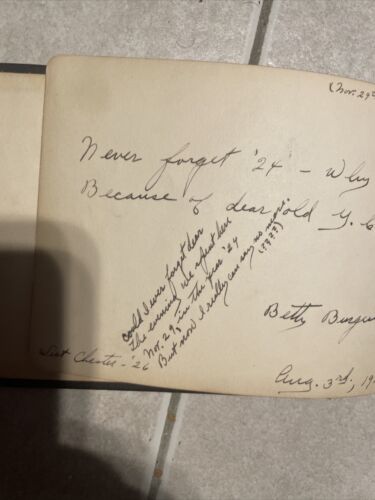 (Nov. 29th
Never forget '24 - Why
Because of dear old Y. C
Could I ever forget dear
The evening we spent here
Nov. 29, in the year '24
But now I really can say no more.
(????)
Betty
West Chester - '26
Aug. 3rd, 19